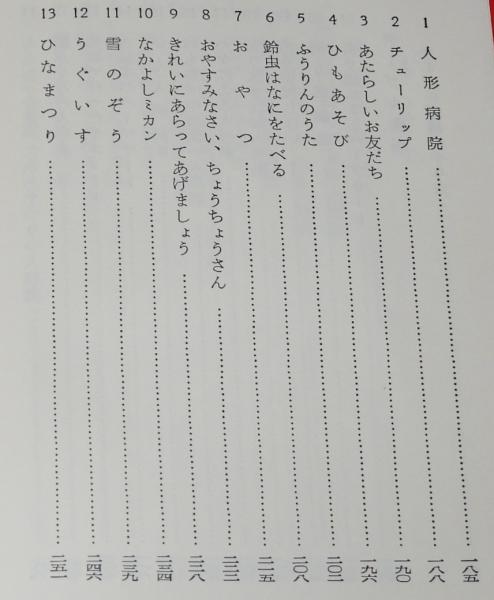 1 人形病院 …… 一八五
2 チューリップ …… 一八八
3 あたらしいお友だち …… 一九〇
4 ひもあそび …… 一九六
5 ふうりんのうた …… 二〇二
6 鈴虫はなにをたべる …… 二〇八
7 おやつ …… 二一五
8 おやすみなさい、ちょうちょうさん …… 二二二
9 きれいにあらってあげましょう …… 二二八
10 なかよしミカン …… 二三四
11 雪のぞう …… 二三九
12 うぐいす …… 二四六
13 ひなまつり …… 二五一